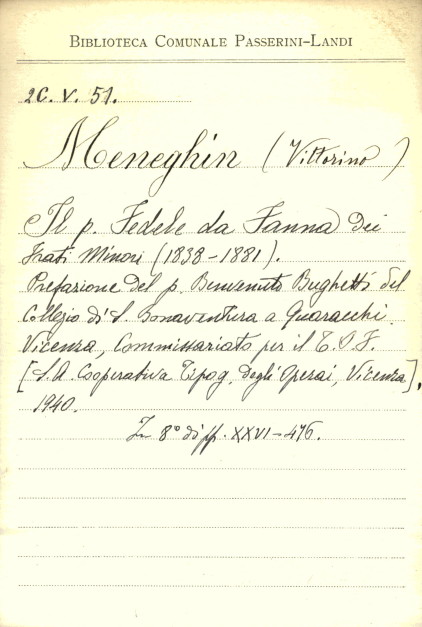 BIBLIOTECA COMUNALE PASSERINI-LANDI
2C. V. 51.
Meneghin (Vittorino)
Il p. Fedele da Fanna dei
Frati Minori (1838-1881).
Prefazione del p. Benvenuto Bughetti del
Collegio di S. Bonaventura a Quaracchi.
Vicenza, Commissariato per il T. S. F.
[S. A. Cooperativa Tipog. degli Operai, Vicenza],
1940.
In 8° di pp. XXVI-476.